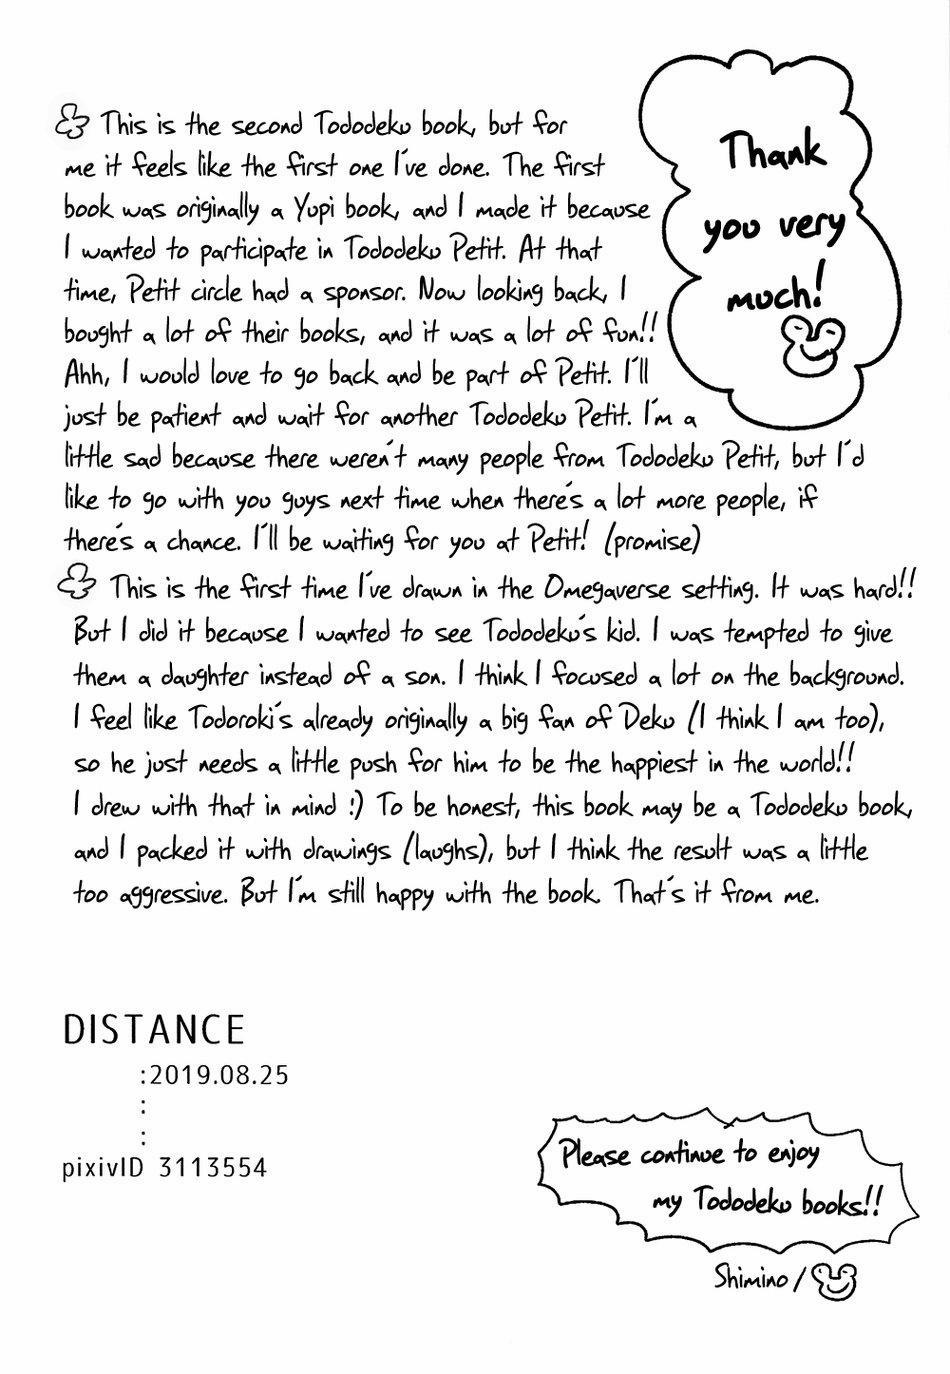 This is the second Tododeku book, but for
me it feels like the first one I've done. The first
book was originally a Yupi book, and I made it because
I wanted to participate in Tododeku Petit. At that
time, Petit circle had a sponsor. Now looking back, I
bought a lot of their books, and it was a lot of fun!!
Ahh, I would love to go back and be part of Petit. I'll
just be patient and wait for another Tododeku Petit. I'm a
little sad because there weren't many people from Tododeku Petit, but I'd
like to go with you guys next time when there's a lot more people, if
there's a chance. I'll be waiting for you at Petit! (promise)
This is the first time I've drawn in the Omegaverse setting. It was hard!!
But I did it because I wanted to see Tododeku's kid. I was tempted to give
them a daughter instead of a son. I think I focused a lot on the background.
I feel like Todoroki's already originally a big fan of Deku (I think I am too),
so he just needs a little push for him to be the happiest in the world!!
I drew with that in mind :) To be honest, this book may be a Tododeku book,
and I packed it with drawings (laughs), but I think the result was a little
too aggressive. But I'm still happy with the book. That's it from me.
Thank
you very
much!
DISTANCE
:2019.08.25
:
:
pixivID 3113554
Please continue to enjoy
my Tododeku books!!
Shimino /